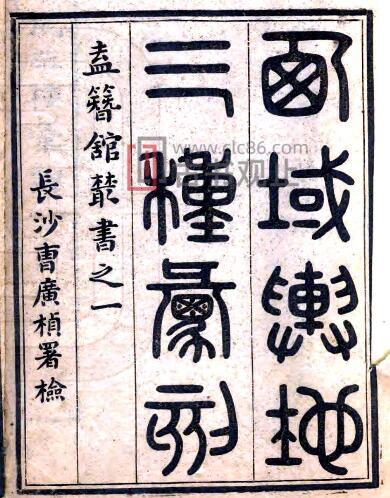 西域輿地
三種彙刻
盍簪館叢書之一
長沙曹廣楨署檢
www.clc86.com